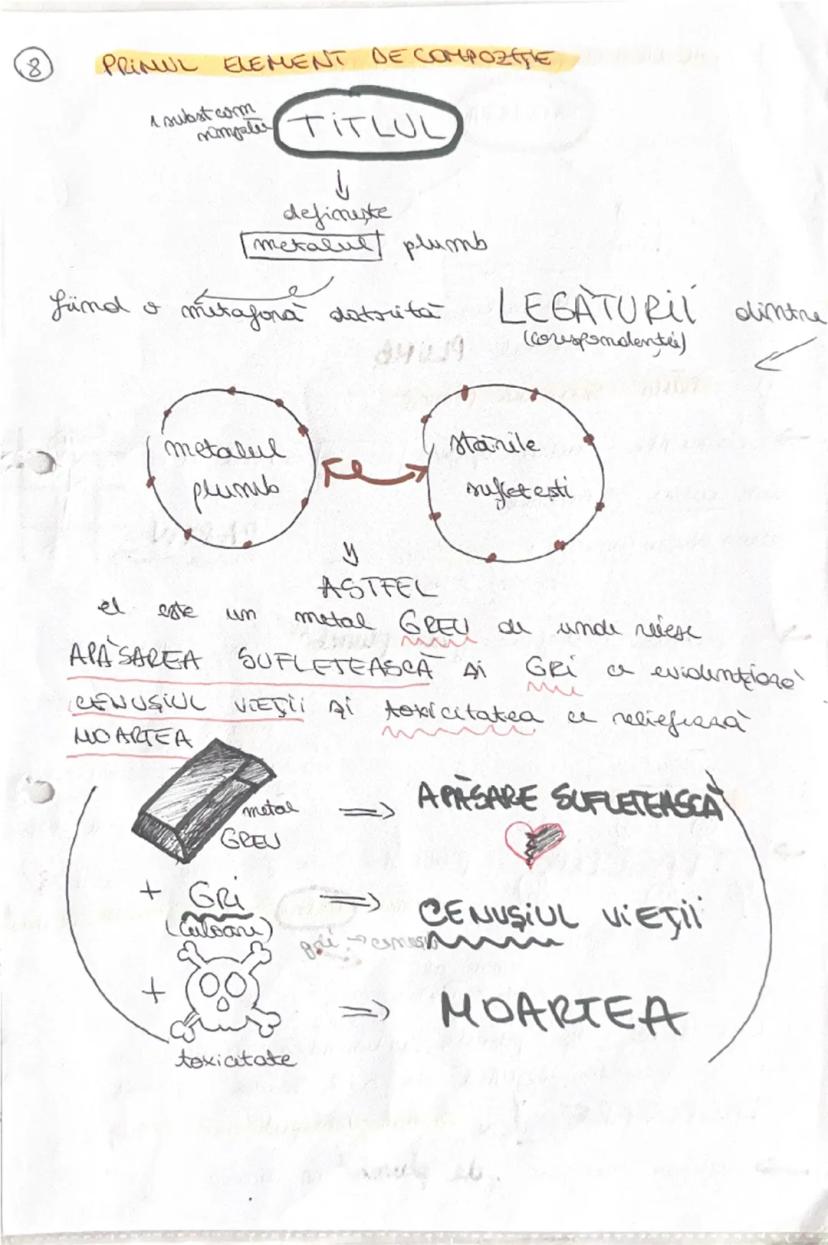 8
PRIMUL ELEMENT DE COMPOZIȚIE
1 subst com
simplu
TITLUL
definește
metalul plumb
fiind o metaforă datorită LEGĂTURII dintre
(corespondenței)
metalul
plumb
stările
sufletești
ASTFEL
el este un metal GREU de unde reiese
APĂSAREA SUFLETEASCĂ și GRI ce evidențiază
CENUȘIUL VIEȚII și toxicitatea ce reliefează
MOARTEA
metal
GREU
=> APĂSARE SUFLETEASCĂ
+ GRI
(culoare)
=> CENUȘIUL VIEȚII
gri → cenușiu
+
=> MOARTEA
toxicitate